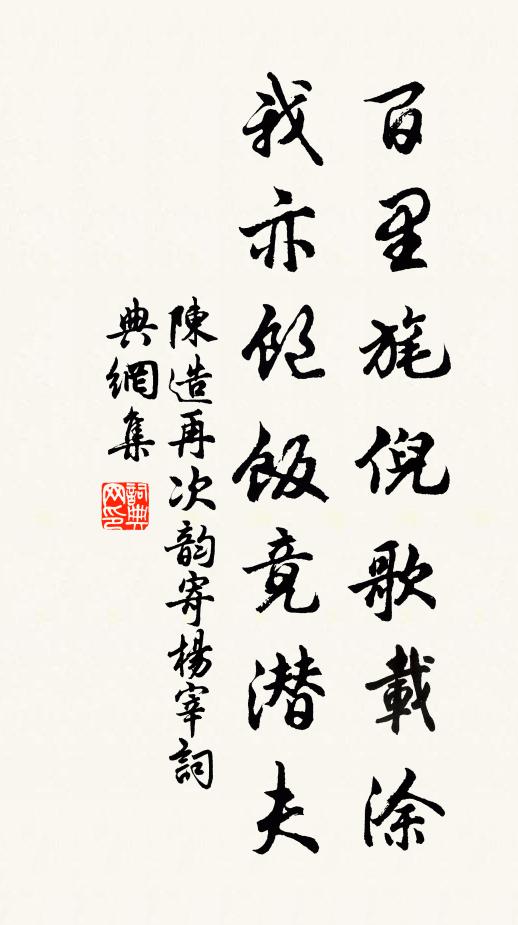 百里旄倪歌載涂
我亦飽飯竟潜夫
陳造再次韵寄楊宰詞
典網集
詞典
网印